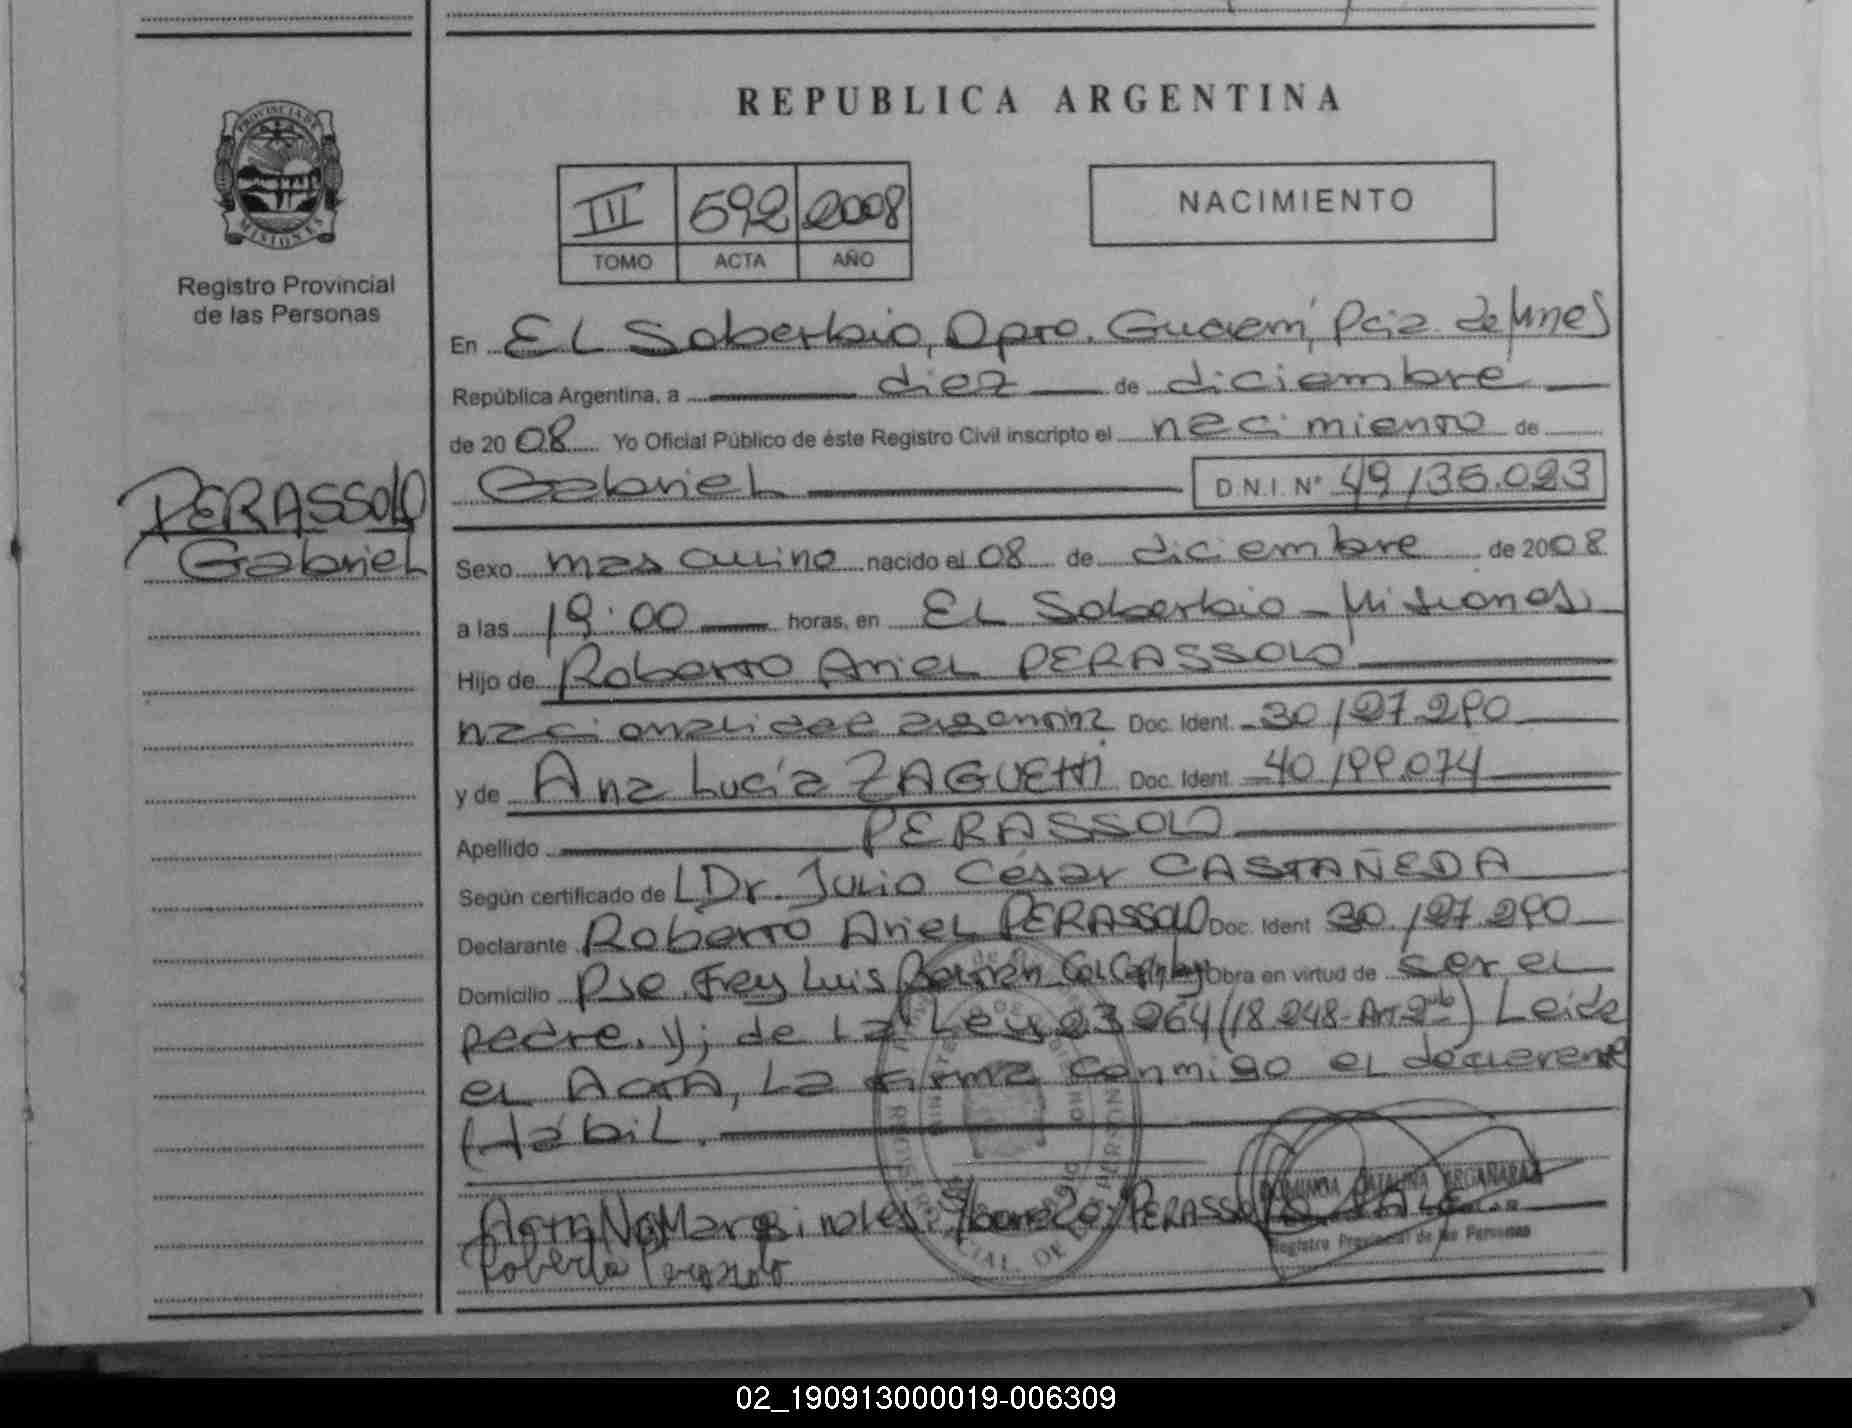 PROVINCIA DE
MISIONES
Registro Provincial
de las Personas
REPUBLICA ARGENTINA
III 592 2008
TOMO ACTA AÑO
NACIMIENTO
En EL Soberbio, Dpto. Guaraní, Pcia. de Mnes
República Argentina, a diez de diciembre
de 20 08 Yo Oficial Público de éste Registro Civil inscripto el nacimiento de
Gabriel D.N.I. Nº 49.135.023
PERASSOLO
Gabriel
Sexo masculino nacido el 08 de diciembre de 2008
a las 19:00 horas, en EL Soberbio - Misiones
Hijo de Roberto Ariel PERASSOLO
nacionalidad argentina Doc. Ident. 30.127.290
y de Ana Lucía ZAGUETTI Doc. Ident. 40.199.074
Apellido PERASSOLO
Según certificado de Dr. Julio César CASTAÑEDA
Declarante Roberto Ariel PERASSOLO Doc. Ident 30.127.290
Domicilio Pje. Fray Luis Obra en virtud de ser el
padre. y; de La Ley 23264 (18.248-Art. 2) Leida
el Acta, La firma conmigo el declarante
Hábil.
Acta No Marginales: PERASSOLO VALE
Roberto Perassolo
CATALINA
Registro Provincial de las Personas
02_190913000019-006309